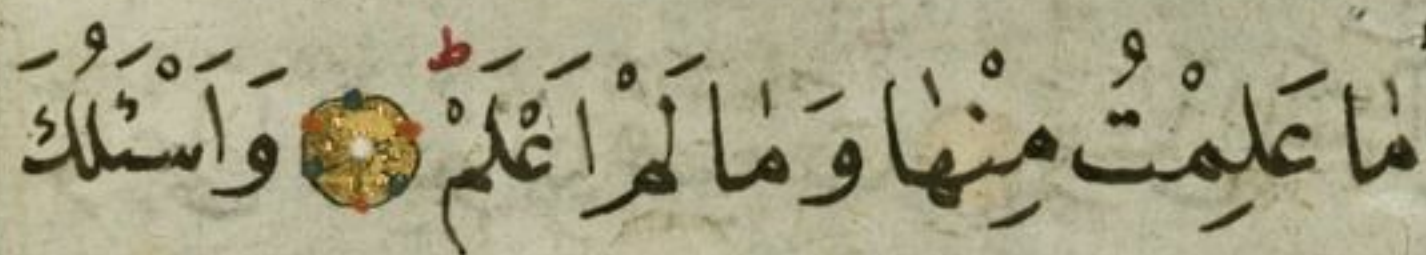 مٰا عَلِمْتُ مِنْهٰا وَ مٰا لَمْ اَعْلَمْ ط وَ اَسْئَلُكَ